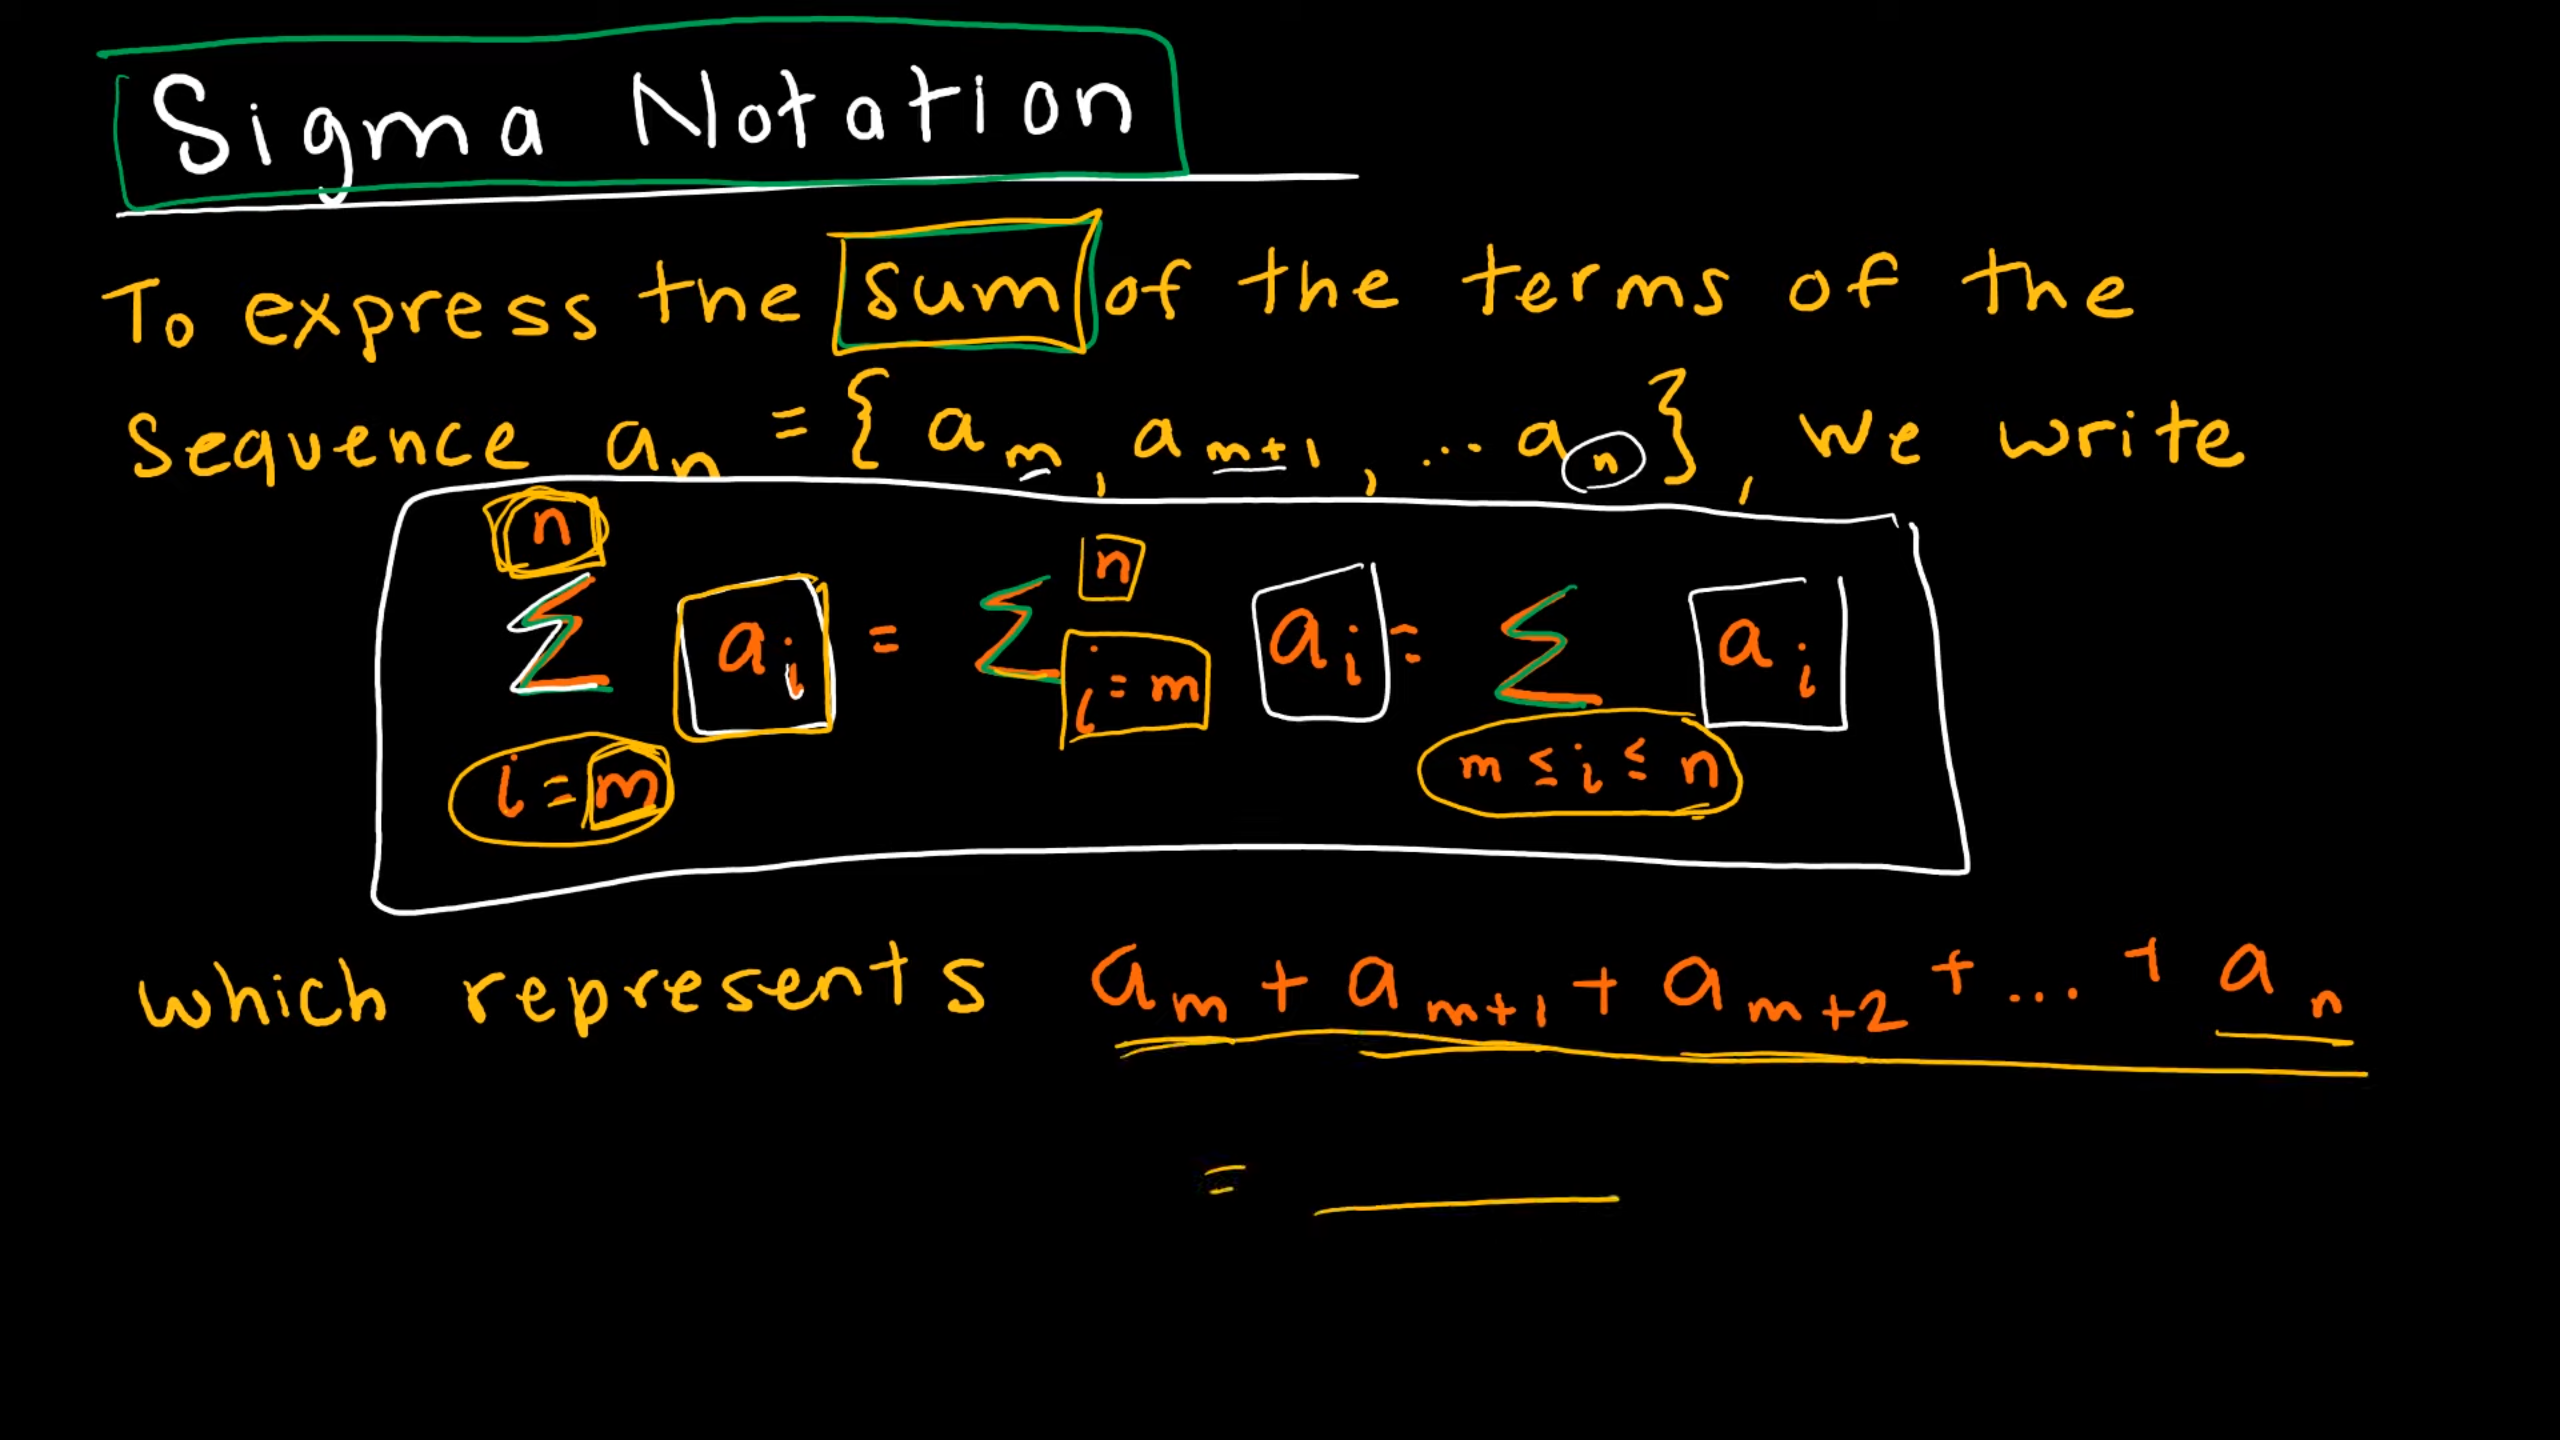 Sigma Notation
To express the sum of the terms of the
sequence aₙ = { aₘ, aₘ₊₁, ... aₙ }, we write
∑ⁿᵢ₌ₘ aᵢ = ∑ⁿᵢ₌ₘ aᵢ = ∑ m ≤ i ≤ n aᵢ
which represents aₘ + aₘ₊₁ + aₘ₊₂ + ... + aₙ
= ______